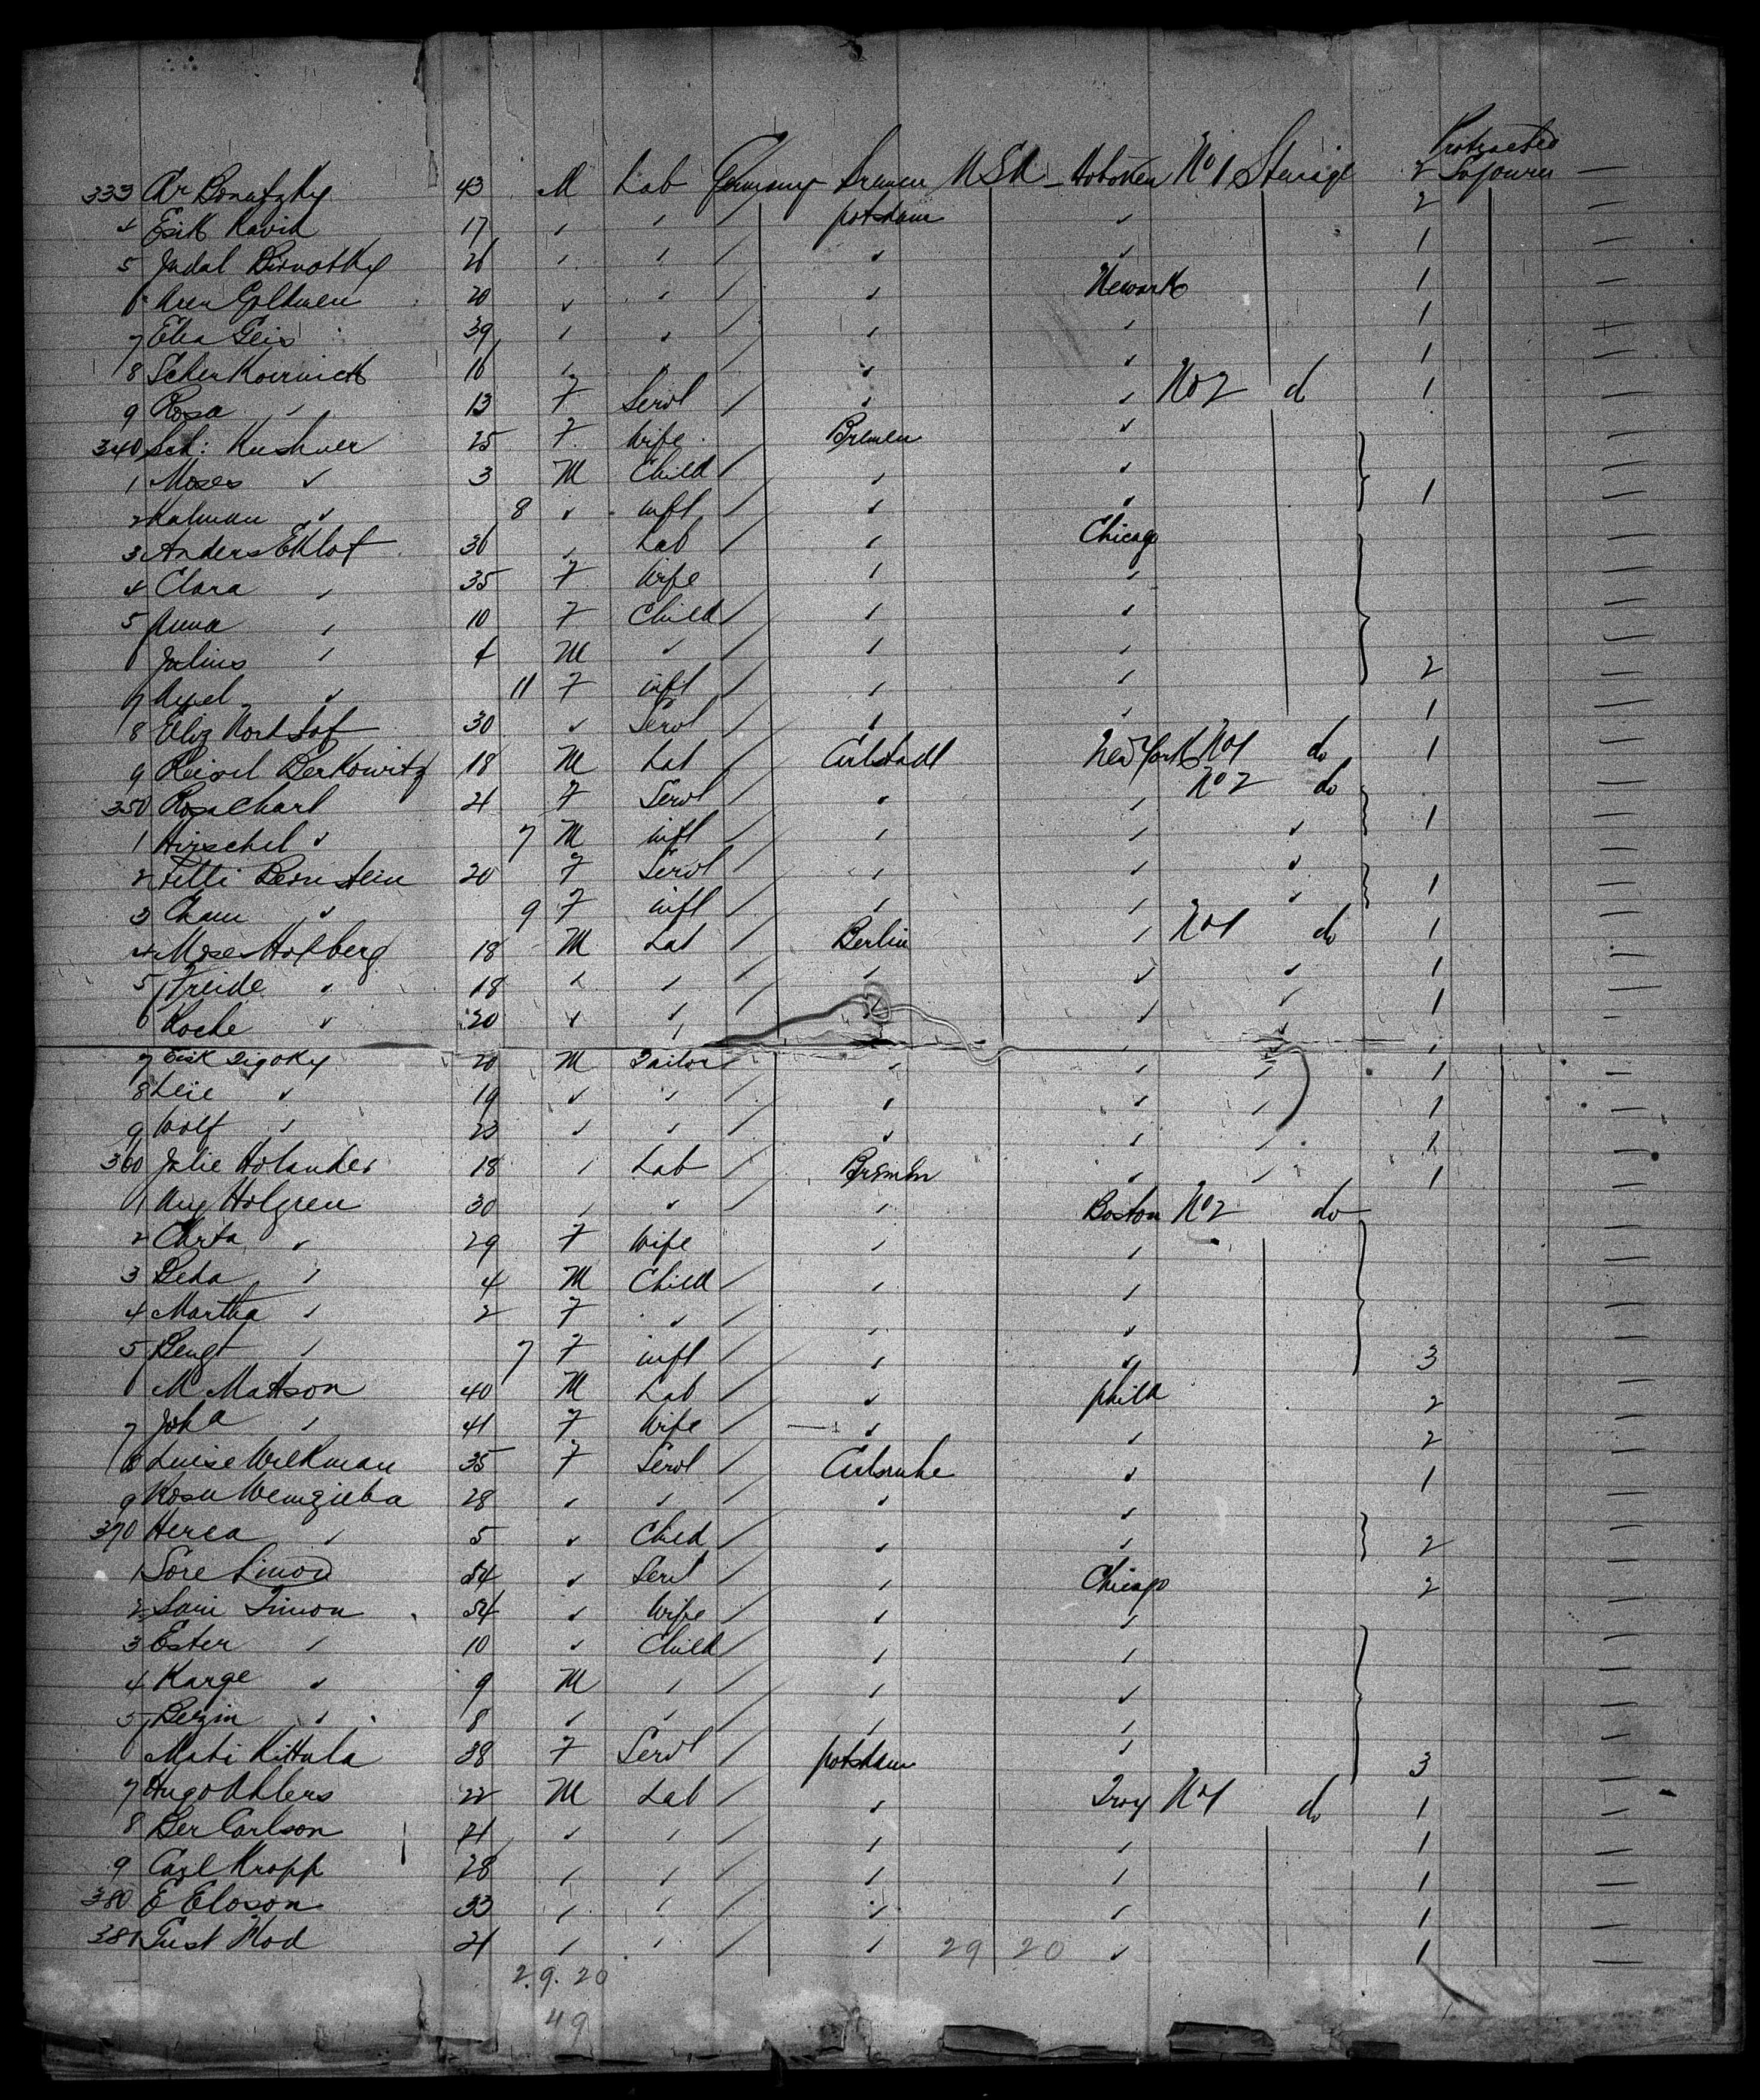 Protracted
333 Ar Bonutzky 43 M Lab Germany Bremen USA - Hoboken No 1 Sterage 2 Sojourn —
4 Esik Kavik 17 " " / potsdam " 2 —
5 Judal Birnotky 26 " " / " " 1 —
6 Aren Goldmen 20 " " / " Newark 1 —
7 Elia Geis 39 " " / " " 1 —
8 Scher Koernick 16 " " / " " 1 —
9 Rosa " 13 F Servt / " " No 2 d 1 —
340 Sch: Kushner 25 F Wife Bremen " —
1 Moses " 3 M Child / " " —
2 Kalman " 8 " inft / " " 1 —
3 Anders Eklof 36 " Lab / " Chicago —
4 Clara " 35 F Wife " " —
5 Anna " 10 F Child / " " —
6 Julius " 4 M " / " " —
7 Axel " 11 F inft / " " 2 —
8 Eliz Nordlof 30 " Servt / " " 1 —
9 Reisel Berkowitz 18 M Lab / Carlstadt New York No 1 do 1 —
350 Rosa Charl 21 F Servt / " " No 2 do —
1 Hirschel " 7 M inft / " " " 1 —
2 Fetti Bernstein 20 F Servt / " " " —
3 Cham " 9 F inft / " " " 1 —
4 Moses Holberg 18 M Lab / Berlin " No 1 do 1 —
5 Freide " 18 " " / " " " 1 —
6 Koche " 20 " " / " " 1 —
7 Esik Zigoky 20 M Tailor / " " " 1 —
8 Leie " 19 " " / " " " 1 —
9 Wolf " 23 " " / " " " 1 —
360 Jalie Holander 18 " Lab / Bremen " " 1 —
1 Aug Holgren 30 " " " Boston No 2 do —
2 Chrta " 29 F Wife " " —
3 Beda " 4 M Child / " " —
4 Martha " 2 F " / " " —
5 Bengt " 7 F inft / " " 3 —
6 M Mattson 40 M Lab / " phila 2 —
7 Joh a " 41 F Wife / " " 2 —
8 Luise Wilkman 35 F Servt / Carlsruhe " 1 —
9 Rosa Wemgieba 28 " " / " " —
370 Herca " 5 " Child / " " 2 —
1 Sore Simon 54 " Servt / " Chicago 2 —
2 Sari Timon 34 " Wife / " " —
3 Ester " 10 " Child / " " —
4 Karge " 9 M " / " " —
5 Berzin " 8 " " / " " —
6 Mati Kittula 38 F Servt / potsdam " 3 —
7 Hugo Ahlers 22 M Lab / " Troy No 1 do 1 —
8 Ber Carlson 21 " " / " " 1 —
9 Carl Kropp 28 " " / " " 1 —
380 E Eloson 33 " " / " " 1 —
381 Gust Mod 21 " " / " 29 20 " 1 —
2.9.20
49